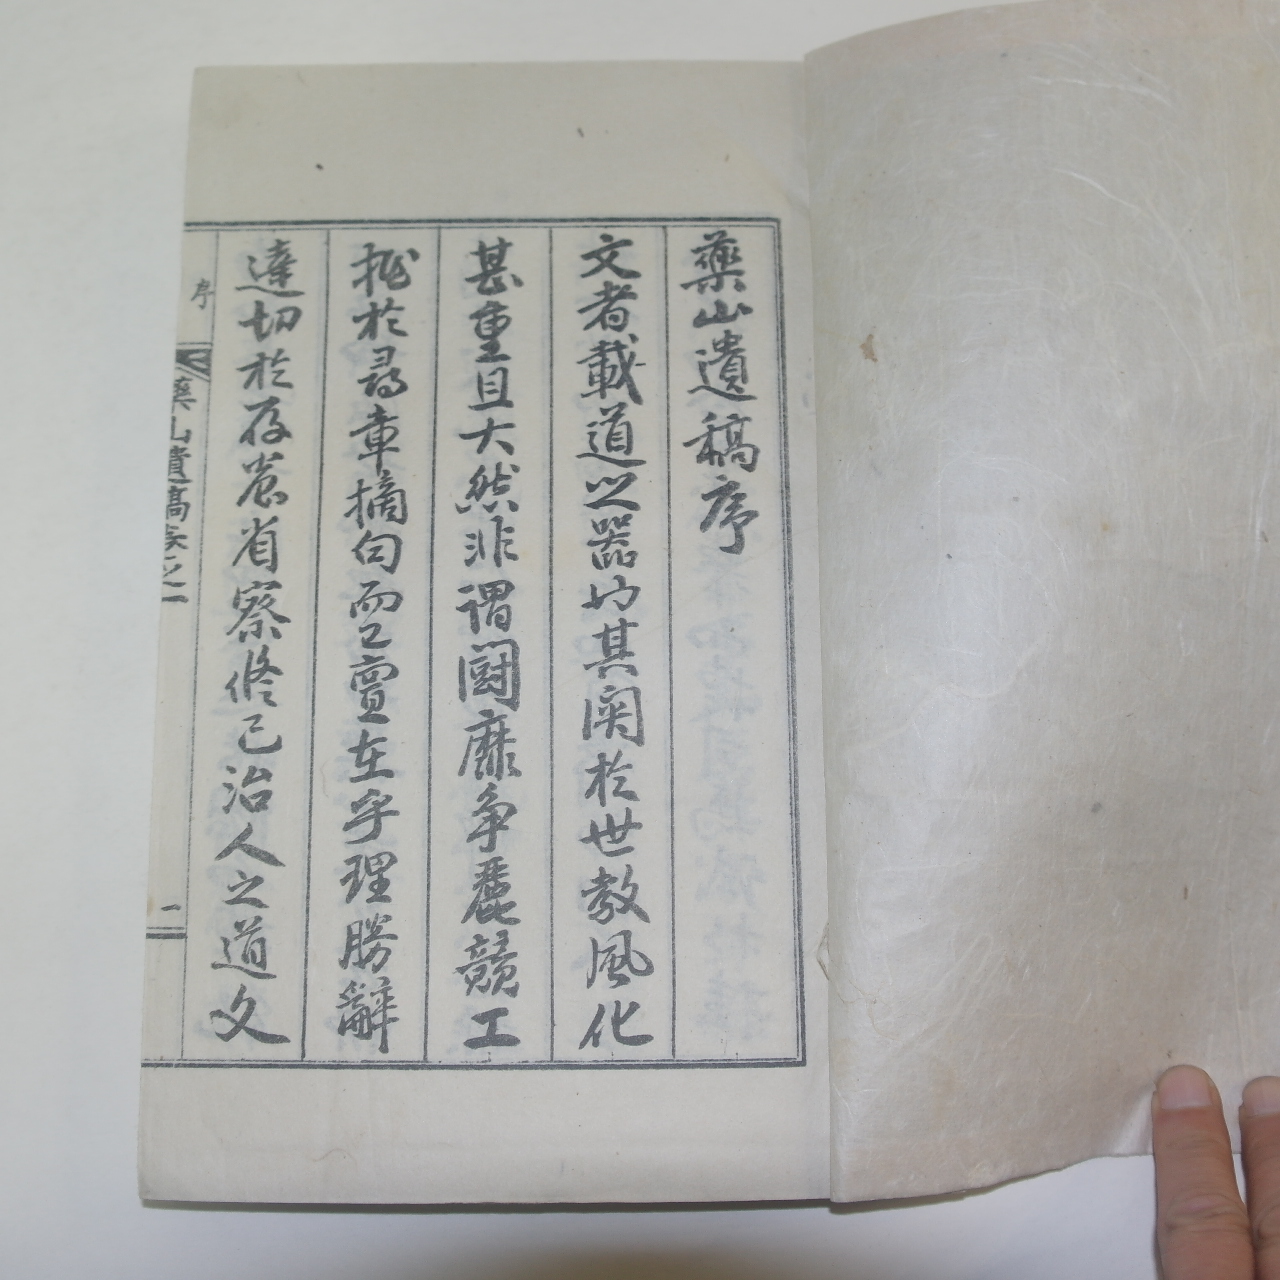 藥山遺稿序
文者載道之器也其関於世教風化
甚重且大然非謂鬪靡争麗競工
拙於尋章摘句而已亶在乎理勝辭
達切於存養省察修己治人之道文
序
藥山遺稿卷之一
一